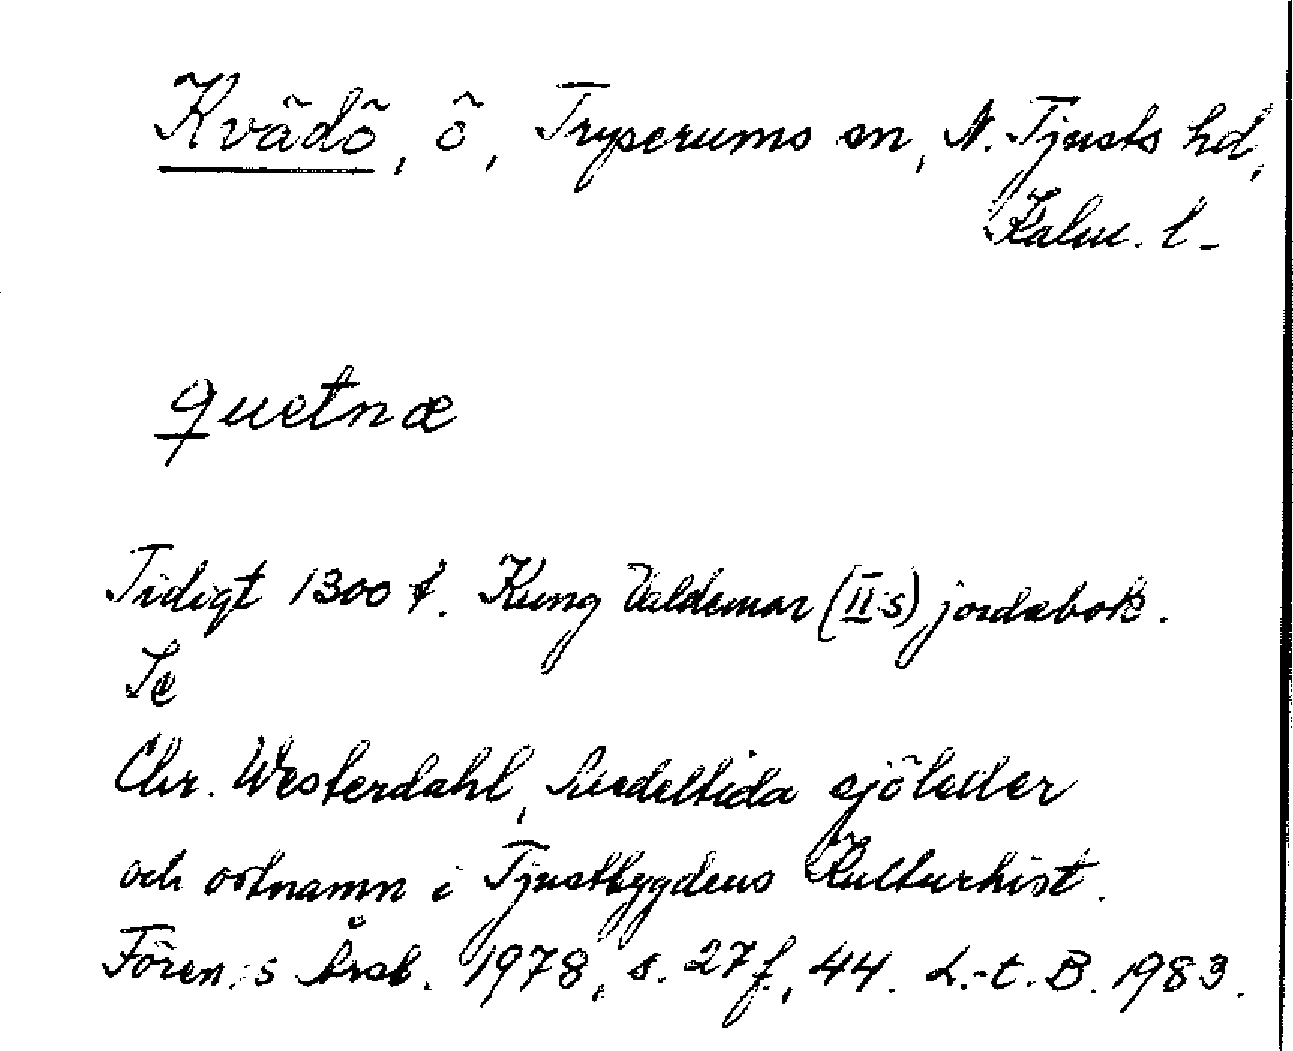 Kvädö, ö, Tryserums sn, N. Tjusts hd,
Kalm. l.
quetnæ
Tidigt 1300 t. Kung Valdemar (II:s) jordabok.
Se
Chr. Westerdahl, Medeltida sjöleder
och ortnamn i Tjustbygdens Kulturhist.
Fören:s Årsb. 1978, s. 27 f, 44. L.-t. B. 1983.